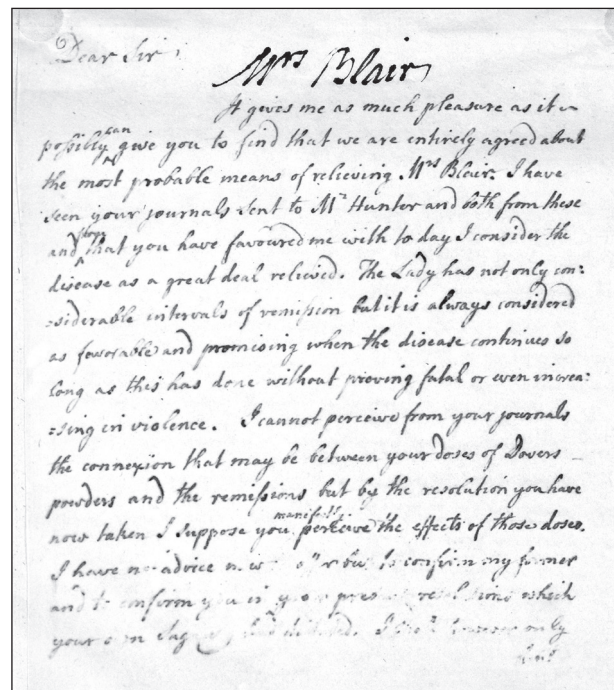 Dear Sir
Mrs Blair
It gives me as much pleasure as it
can
possibly give you to find that we are entirely agreed about
the most probable means of relieving Mrs Blair. I have
seen your journals sent to Mr Hunter and both from these
and from that you have favoured me with to day I consider the
disease as a great deal relieved. The Lady has not only con:
:siderable intervals of remission but it is always considered
as favorable and promising when the disease continues so
long as this has done without proving fatal or even increa:
:sing in violence. I cannot perceive from your journals
the connexion that may be between your doses of Dovers
powders and the remissions but by the resolution you have
manifestly
now taken I suppose you perceive the effects of those doses.
I have no advice now to offer but to confirm my former
and to confirm you in your present resolutions which
your own Sagacity had dictated. I only